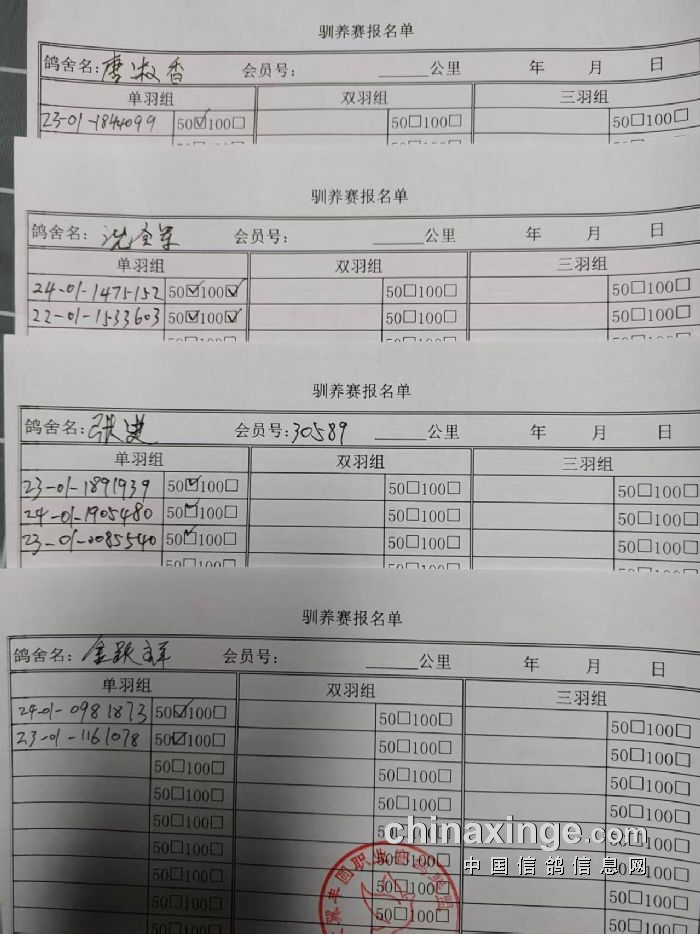 驯养赛报名单
鸽舍名：唐淑香 会员号： 公里 年 月 日
单羽组 双羽组 三羽组
23-01-1844099 50☑100☐ 50☐100☐ 50☐100☐
驯养赛报名单
鸽舍名：沈全军 会员号： 公里 年 月 日
单羽组 双羽组 三羽组
24-01-1475152 50☑100☑ 50☐100☐ 50☐100☐
22-01-1533603 50☑100☑ 50☐100☐ 50☐100☐
驯养赛报名单
鸽舍名：张进 会员号：30589 公里 年 月 日
单羽组 双羽组 三羽组
23-01-1891939 50☑100☐ 50☐100☐ 50☐100☐
24-01-1905480 50☑100☐ 50☐100☐ 50☐100☐
23-01-2085540 50☑100☐ 50☐100☐ 50☐100☐
驯养赛报名单
鸽舍名：金跃祥 会员号： 公里 年 月 日
单羽组 双羽组 三羽组
24-01-0981873 50☑100☐ 50☐100☐ 50☐100☐
23-01-1161078 50☑100☐ 50☐100☐ 50☐100☐
50☐100☐ 50☐100☐ 50☐100☐
50☐100☐ 50☐100☐ 50☐100☐
50☐100☐ 50☐100☐ 50☐100☐
50☐100☐ 50☐100☐ 50☐100☐
50☐100☐ 50☐100☐ 50☐100☐
50☐100☐ 50☐100☐ 50☐100☐
chinaxinge.com
中国信鸽信息网
翼丰园职业